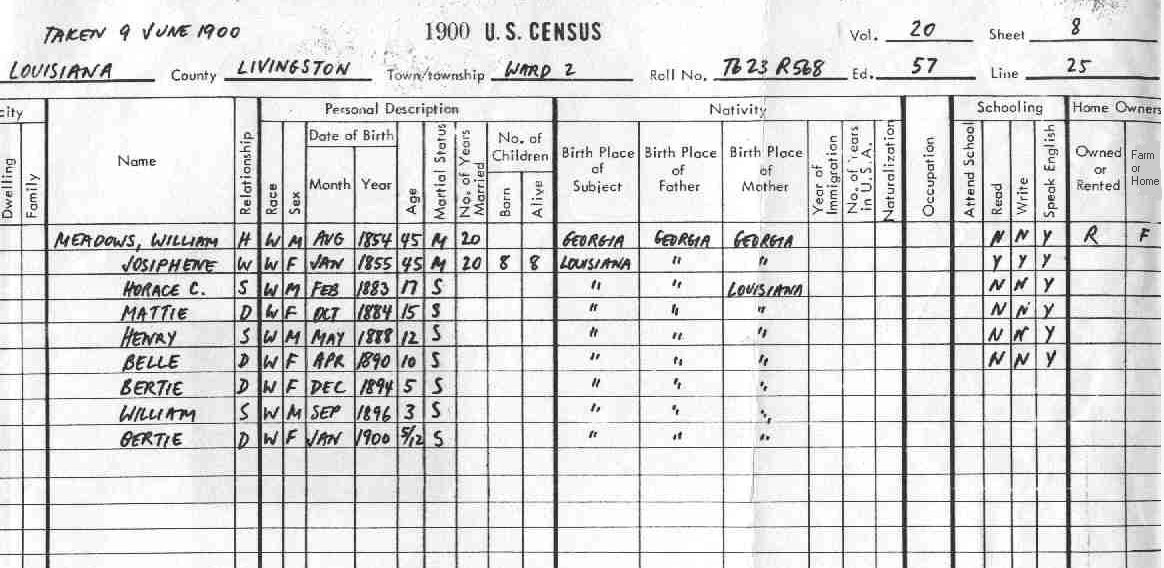 TAKEN 9 JUNE 1900 1900 U.S. CENSUS Vol. 20 Sheet 8
LOUISIANA County LIVINGSTON Town/township WARD 2 Roll No. T623 R568 Ed. 57 Line 25
city Personal Description Nativity Schooling Home Owners
Dwelling Family Name Relationship Race Sex Date of Birth Month Year Age Martial Status No. of Years Married No. of Children Born Alive Birth Place of Subject Birth Place of Father Birth Place of Mother Year of Immigration No. of Years in U.S.A. Naturalization Occupation Attend School Read Write Speak English Owned or Rented Farm or Home
MEADOWS, WILLIAM H W M AUG 1854 45 M 20 GEORGIA GEORGIA GEORGIA N N Y R F
JOSIPHENE W W F JAN 1855 45 M 20 8 8 LOUISIANA " " Y Y Y
HORACE C. S W M FEB 1883 17 S " " LOUISIANA N N Y
MATTIE D W F OCT 1884 15 S " " " N N Y
HENRY S W M MAY 1888 12 S " " " N N Y
BELLE D W F APR 1890 10 S " " " N N Y
BERTIE D W F DEC 1894 5 S " " "
WILLIAM S W M SEP 1896 3 S " " "
GERTIE D W F JAN 1900 5/12 S " " "